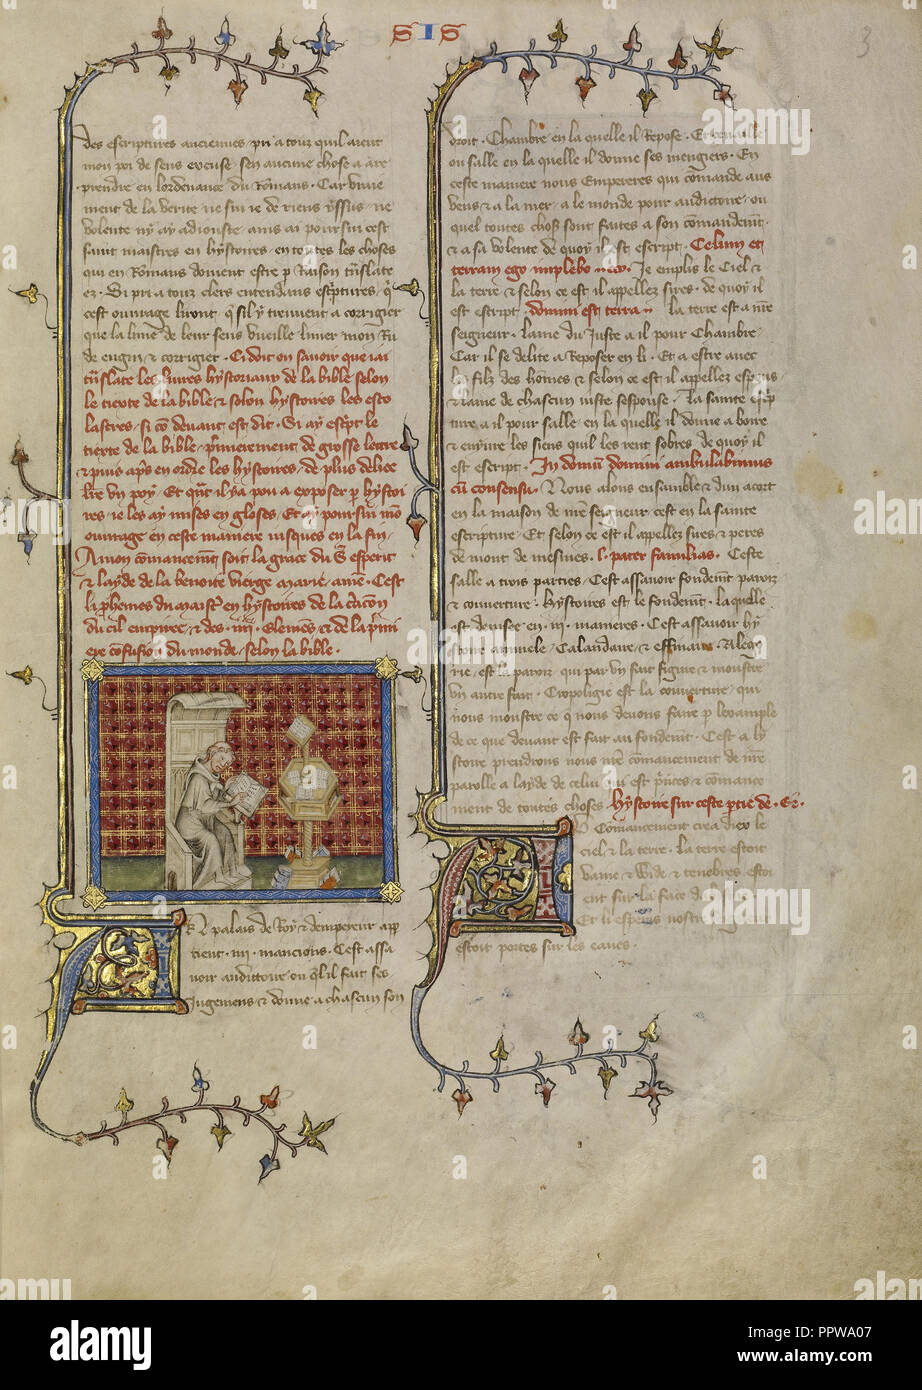 SIS
3
des escriptures anciennes . pri a touz quil aient
mon poi de sens excuse . sen aucune chose a a re
prendre en lordenance du Romans . Car
ment de la verite ne sui ie de riens yssus . ne
volente ny ay adiouste . ains ai poursui cest
saint maistres en hystoires . en totes les choses
qui en Romans doivent estre p raison tnslate
ez . Si pri a touz clers entendans escptures . q
cest ouvrage liront . q sil y treuvent a corrigier
que la lime de leur sens vueille limer mon ru
de engin & corrigier . Ci doit on savoir que iai
tnslate les livres hystoriaux de la bible selon
le tiexte de la bible & selon hystoires les esco
lastres . si co devant est dit . Si ay escpt le
tiexte de la bible . pmierement de grosse lettre
& puis aps en ordre les hystoires . de plus deliee
lre un poy . Et qnt il y a pou a exposer p hystoi
res . ie les ay mises en gloses . Et ay poursui mo
ouvrage en ceste maniere iusques en la fin .
A mon comancemt soit la grace du s esperit
& layde de la benoite vierge marie . amen . Cest
li phemes du maistr en hystoires de la cacon
du ciel empire & des . iiij . Elemens & de la pmi
ere confusion du monde . selon la bible .
EN palais de Roy & dempereur app
tient . iiij . mancions . Cest assa
voir auditoire ou ql il fait ses
Jugemens & donne a chascun son
droit . Chambre en la quelle il repose . Et
ou salle en la quelle il donne ses mengiers . En
ceste maniere nous Empereres qui comande aus
vens & a la mer . a le monde pour auditoire . ou
quel toutes choses sont faites a son comandemt .
& a sa volente de quoy il est escript . Celum et
terram ego implebo . Je emplis le Ciel &
la terre & selon ce est il appellez sires . de quoy il
est escript . domini est terra . La terre est a me
seigneur . Lame du Juste a il pour Chambre .
Car il se delite a Reposer en li . Et a estre avec
les filz des homes & selon ce est il appellez espous
& lame de chascun iuste sespouse . La sainte escp
ture a il pour salle . en la quelle il donne a boire
& enyvre les siens quil les rent sobres de quoy il
est escript . In domu domini ambulabimus
cu consensu . Nous alons ensamble & dun acort
en la maison de me seigneur . cest en la sainte
escripture . Et selon ce est il appellez sires & peres
de mont de mesnies . l . pater familias . Ceste
salle a trois parties . Cest assavoir fondemt paroiz
& couverture . hystoires est le fondemt . la quelle
est devisee en . iij . manieres . Cest assavoir hy
stoire annuele . Calandaire & effimaire . Alego
rie . est la paroiz qui par un fait figure & monstre
un autre fait . Tropoligie est la couverture . qui
nous monstre ce q nous devons faire p lexample
de ce que devant est fait au fondemt . Cest a hy
stoire prendrons nous me comancement de me
parolle a layde de celui qui est pnces & comance
ment de toutes choses . hystoire sur ceste ptie de . Ge .
U Comancement crea diex le
ciel & la terre . La terre estoit
vaine & vide & tenebres estoi
ent sur la face
Et li esperis nostre
estoit portes sur les eaues .
alamy
Image ID: PPWA07
www.alamy.com